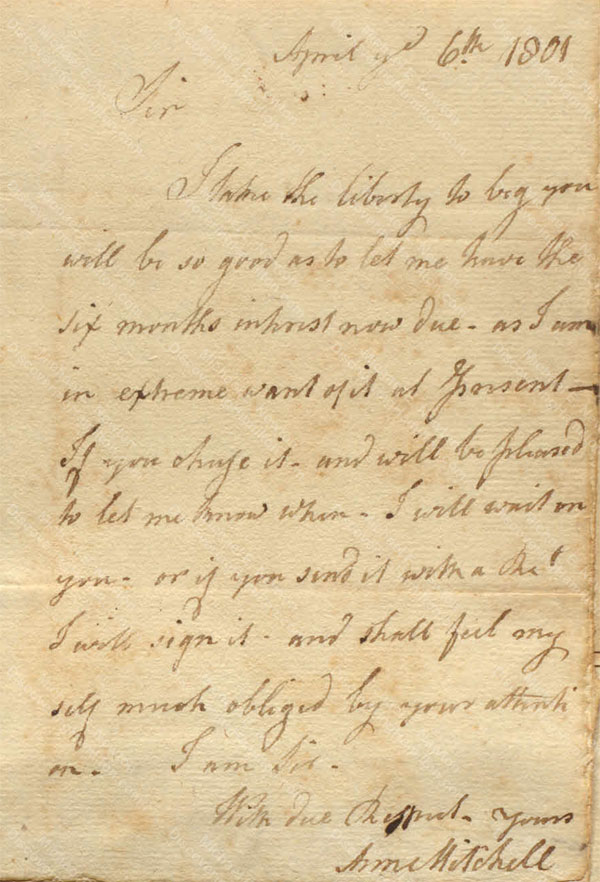 April yᵉ 6th 1801
Sir
I take the liberty to beg you
will be so good as to let me have the
six months intrest now due - as I am
in extreme want of it at Present -
If you chuse it - and will be pleased
to let me know when - I will wait on
you - or if you send it with a Rect
I will sign it - and shall feel my
self much obliged by your attenti
on - I am Sir -
With due Respect - yours
Anne Mitchell